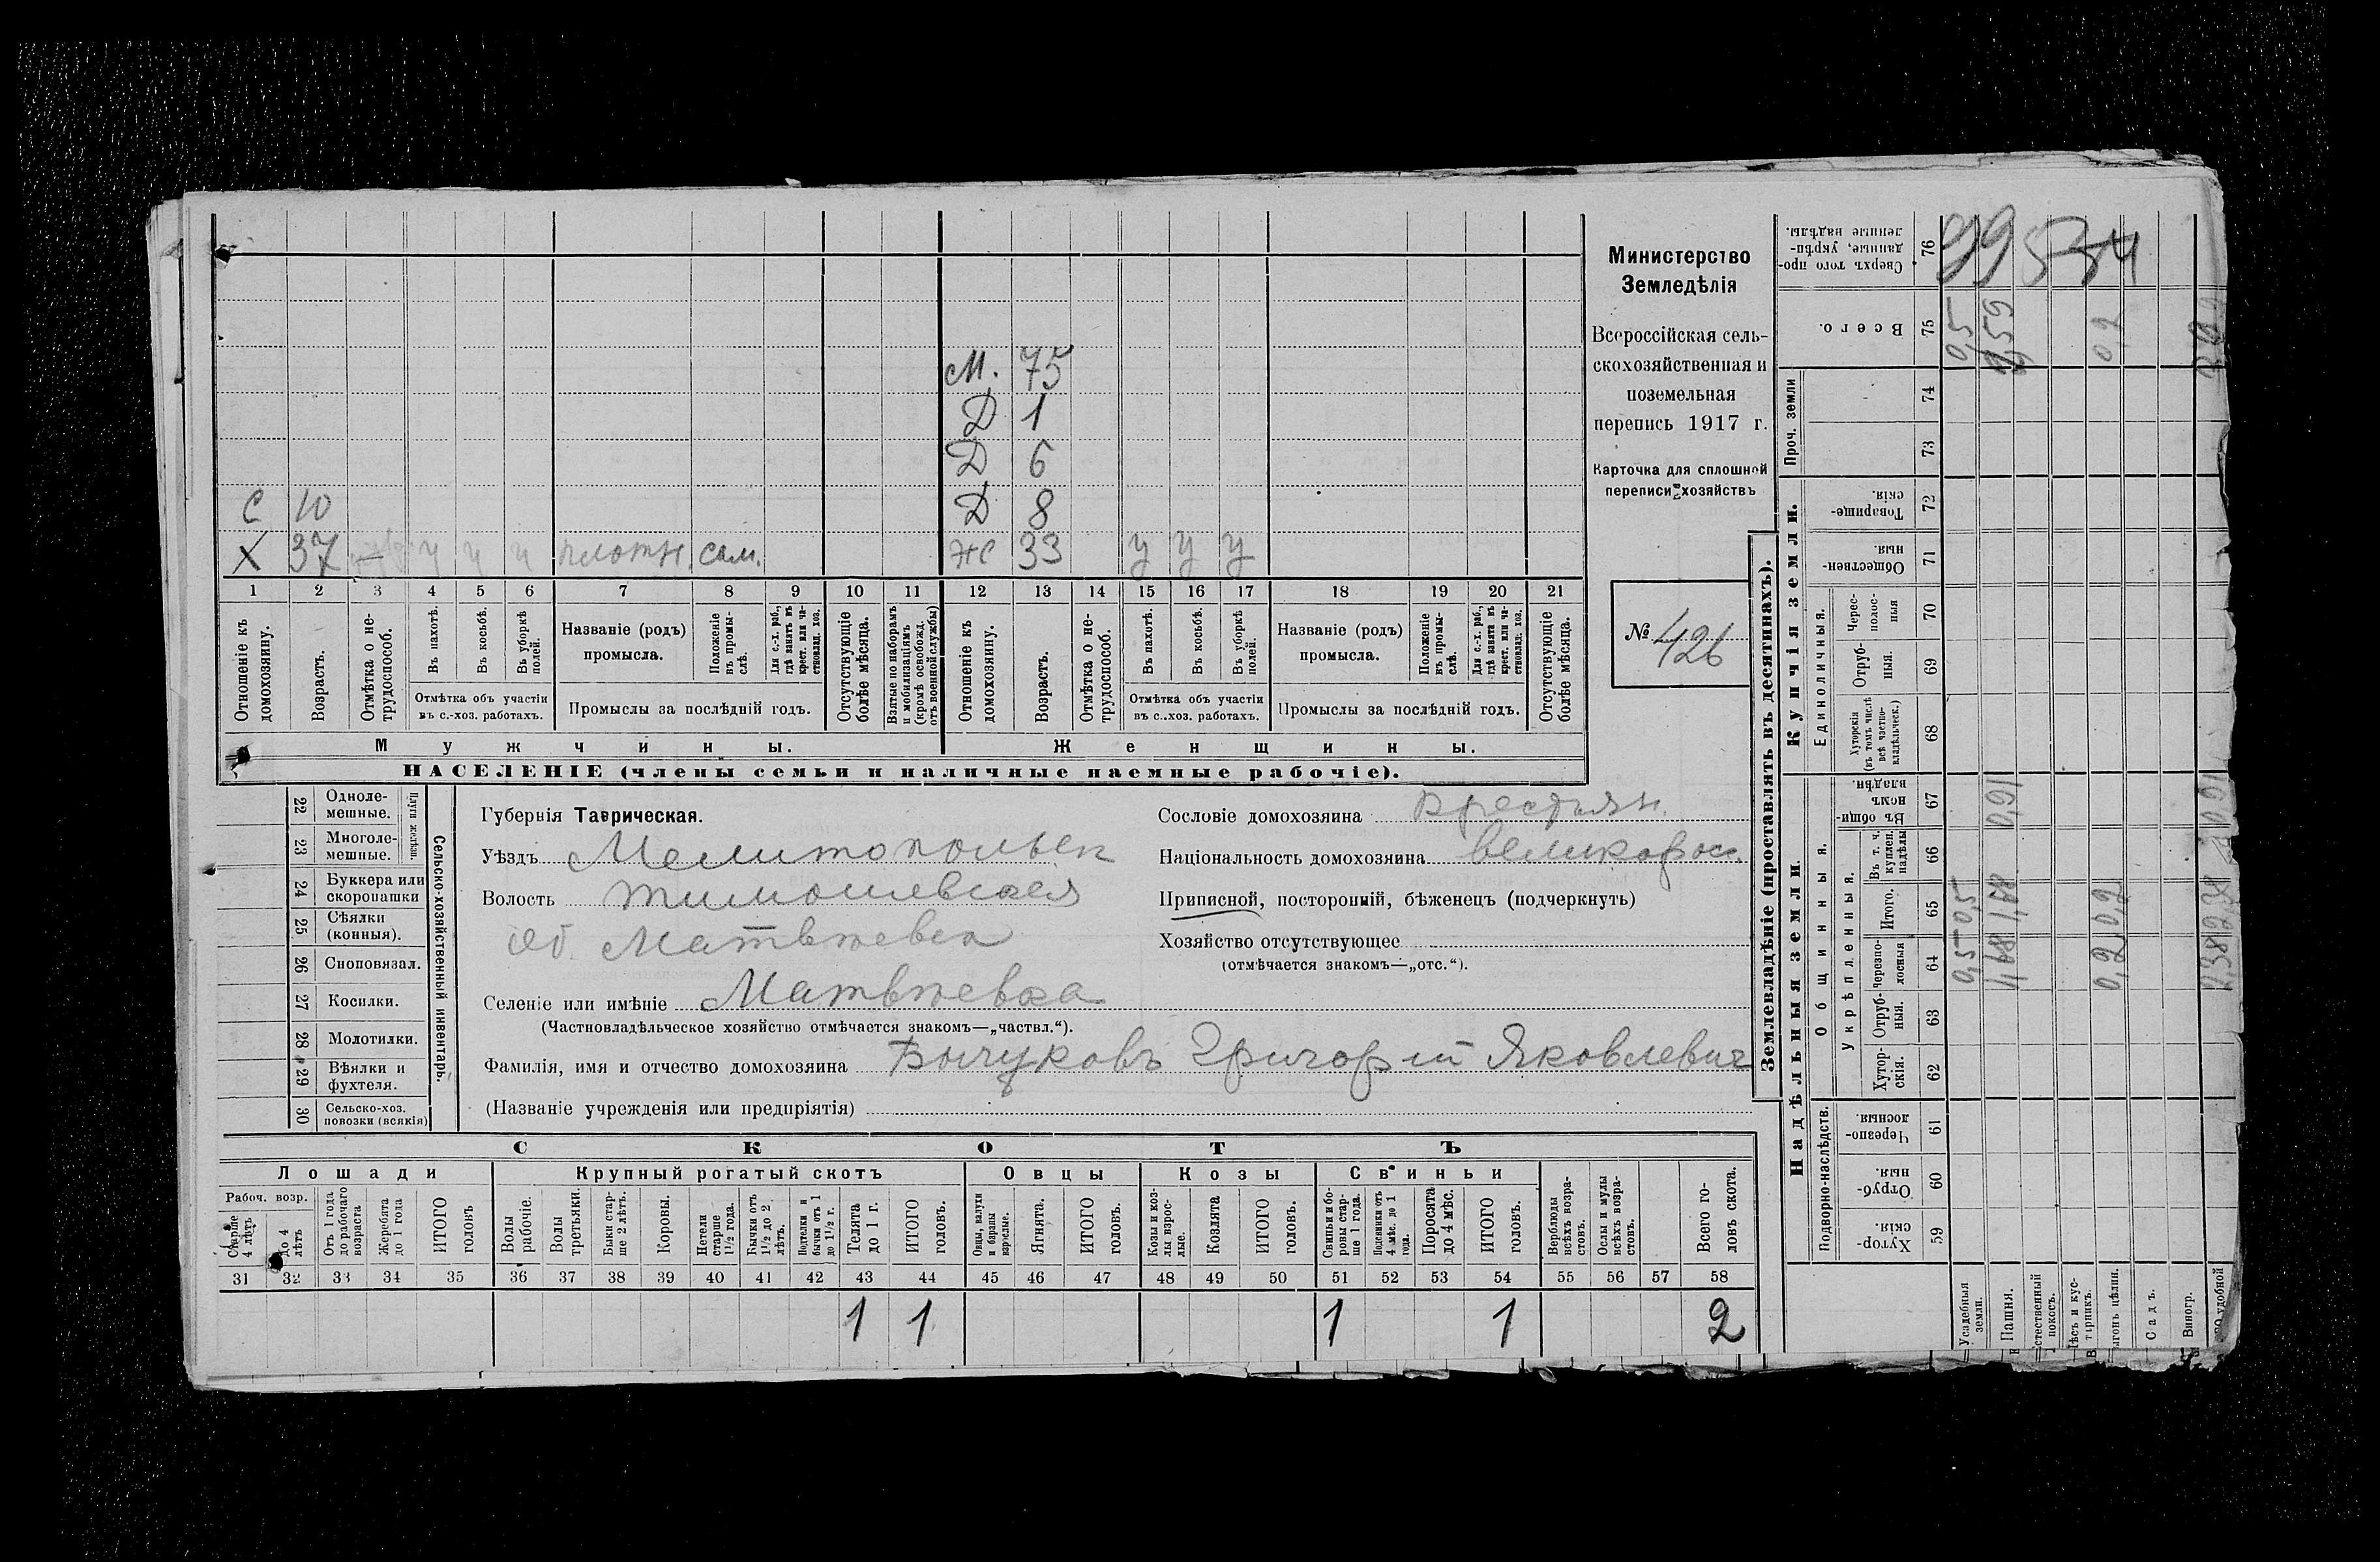 М. 75
Д 1
Д 6
С 10 Д 8
Х 37 — у ч ч плотн. сам. ж 33 у у у
1 2 3 4 5 6 7 8 9 10 11 12 13 14 15 16 17 18 19 20 21
Отношеніе къ домохозяину.
Возрастъ.
Отмѣтка о нетрудоспособ.
Въ пахотѣ.
Въ косьбѣ.
Въ уборкѣ полей.
Отмѣтка объ участіи
въ с.-хоз. работахъ.
Названіе (родъ)
промысла.
Положеніе въ промыслѣ.
Для с.-х. раб., гдѣ занятъ въ крест. или частновлад. хоз.
Промыслы за послѣдній годъ.
Отсутствующіе болѣе мѣсяца.
Взятые по наборамъ и мобилизаціямъ (кромѣ освобожд. отъ военной службы)
Отношеніе къ домохозяину.
Возрастъ.
Отмѣтка о нетрудоспособ.
Въ пахотѣ.
Въ косьбѣ.
Въ уборкѣ полей.
Отмѣтка объ участіи
въ с.-хоз. работахъ.
Названіе (родъ)
промысла.
Положеніе въ промыслѣ.
Для с.-х. раб., гдѣ занята въ крест. или частновлад. хоз.
Промыслы за послѣдній годъ.
Отсутствующіе болѣе мѣсяца.
Мужчины. Женщины.
НАСЕЛЕНІЕ (члены семьи и наличные наемные рабочіе).
Министерство
Земледѣлія
Всероссійская сель-
скохозяйственная и
поземельная
перепись 1917 г.
Карточка для сплошной
переписи хозяйствъ
№ 426
Сельско-хозяйственный инвентарь.
Плуги желѣзн.
22 Одноле-
мешные.
23 Многоле-
мешные.
24 Буккера или
скоропашки
25 Сѣялки
(конныя).
26 Сноповязал.
27 Косилки.
28 Молотилки.
29 Вѣялки и
фухтеля.
30 Сельско-хоз.
повозки (всякія)
Губернія Таврическая.
Уѣздъ Мелитопольск
Волость Тимошевская
об. Матвѣевка
Селеніе или имѣніе Матвѣевка
(Частновладѣльческое хозяйство отмѣчается знакомъ—„частвл.“).
Фамилія, имя и отчество домохозяина Бычуковъ Григорій Яковлевич
(Названіе учрежденія или предпріятія)
Сословіе домохозяина Крестьян.
Національность домохозяина великорос.
Приписной, посторонній, бѣженецъ (подчеркнуть)
Хозяйство отсутствующее
(отмѣчается знакомъ—„отс.“).
СКОТЪ
Лошади
Рабоч. возр.
Старше 4 лѣтъ
до 4 лѣтъ
Отъ 1 года до рабочаго возраста
Жеребята до 1 года
ИТОГО головъ
Крупный рогатый скотъ
Волы рабочіе.
Волы третьяки.
Быки старше 2 лѣтъ.
Коровы.
Нетели старше 1½ года.
Бычки отъ 1½ до 2 лѣтъ.
Подтелки и бычки отъ 1 до 1½ г.
Телята до 1 г.
ИТОГО головъ.
Овцы
Овцы, валухи и бараны взрослые.
Ягнята.
ИТОГО головъ.
Козы
Козы и козлы взрослые.
Козлята
ИТОГО головъ.
Свиньи
Свиньи и боровы старше 1 года.
Подсвинки отъ 4 мѣс. до 1 года.
Поросята до 4 мѣс.
ИТОГО головъ.
Верблюды всѣхъ возрастовъ.
Ослы и мулы всѣхъ возрастовъ.
Всего головъ скота.
31 32 33 34 35 36 37 38 39 40 41 42 43 44 45 46 47 48 49 50 51 52 53 54 55 56 57 58
1 1 1 1 2
Землевладѣніе (проставлять въ десятинахъ).
Надѣльныя земли.
Подворно-наслѣдств.
Хуторскія. 59
Отрубныя. 60
Черезполосныя. 61
Общинныя.
Укрѣпленныя.
Хуторскія. 62
Отрубныя. 63
Черезполосныя 64
Итого. 65
Въ т. ч. куплен. надѣлы 66
Въ общинномъ владѣн. 67
Купчія земли.
Единоличныя.
Хуторскія (въ томъ числѣ всѣ частновладѣльческ.) 68
Отрубныя. 69
Чересполосныя 70
Общественныя. 71
Товарищескія. 72
Проч. земли
73
74
Всего. 75
Сверхъ того проданные, укрѣпленные надѣлы. 76
Усадебныя земли. 0,5 0,5 0,5
Пашня. 1,68 1,68 0,91
Естественный покосъ.
Лѣсъ и кустарникъ.
Выгонъ цѣлин. 0,2 0,2 0,2
Садъ.
Виногр.
99 534